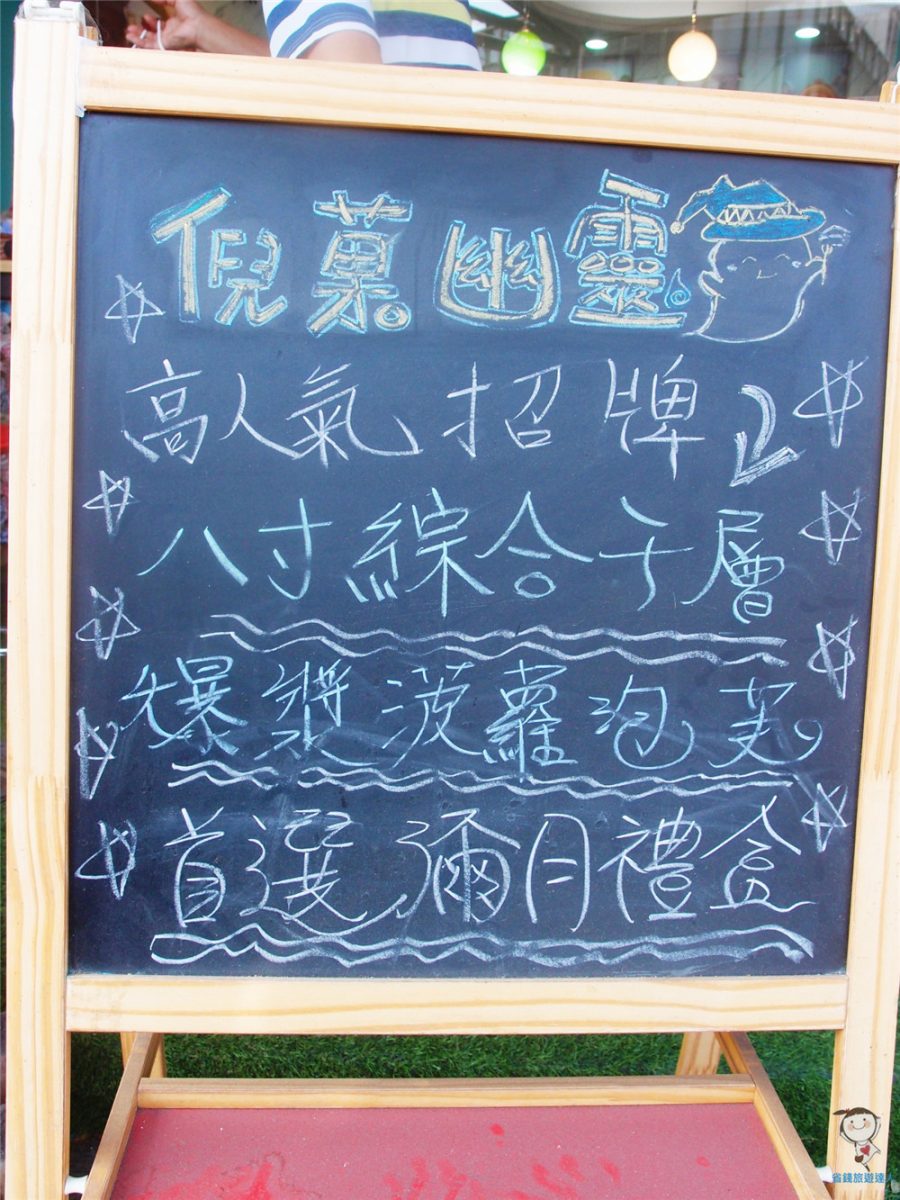 倪菓幽靈
高人氣招牌
八寸綜合千層
爆漿菠蘿泡芙
首選彌月禮盒
省錢旅遊達人